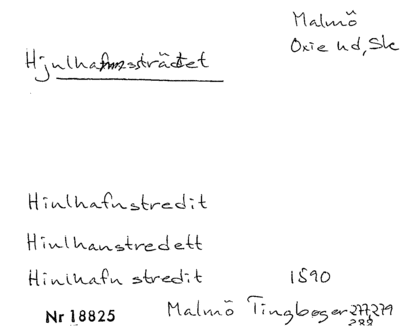 Malmö
Oxie hd, Sk
Hjulhamnssträdet
Hiulhafnstredit
Hiulhanstredett
Hiulhafn stredit 1590
Nr 18825 Malmö Tingbøger 277, 279
288